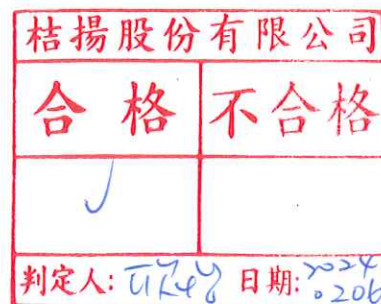 桔揚股份有限公司
合格 不合格
✓
判定人: 日期: 2024
0206